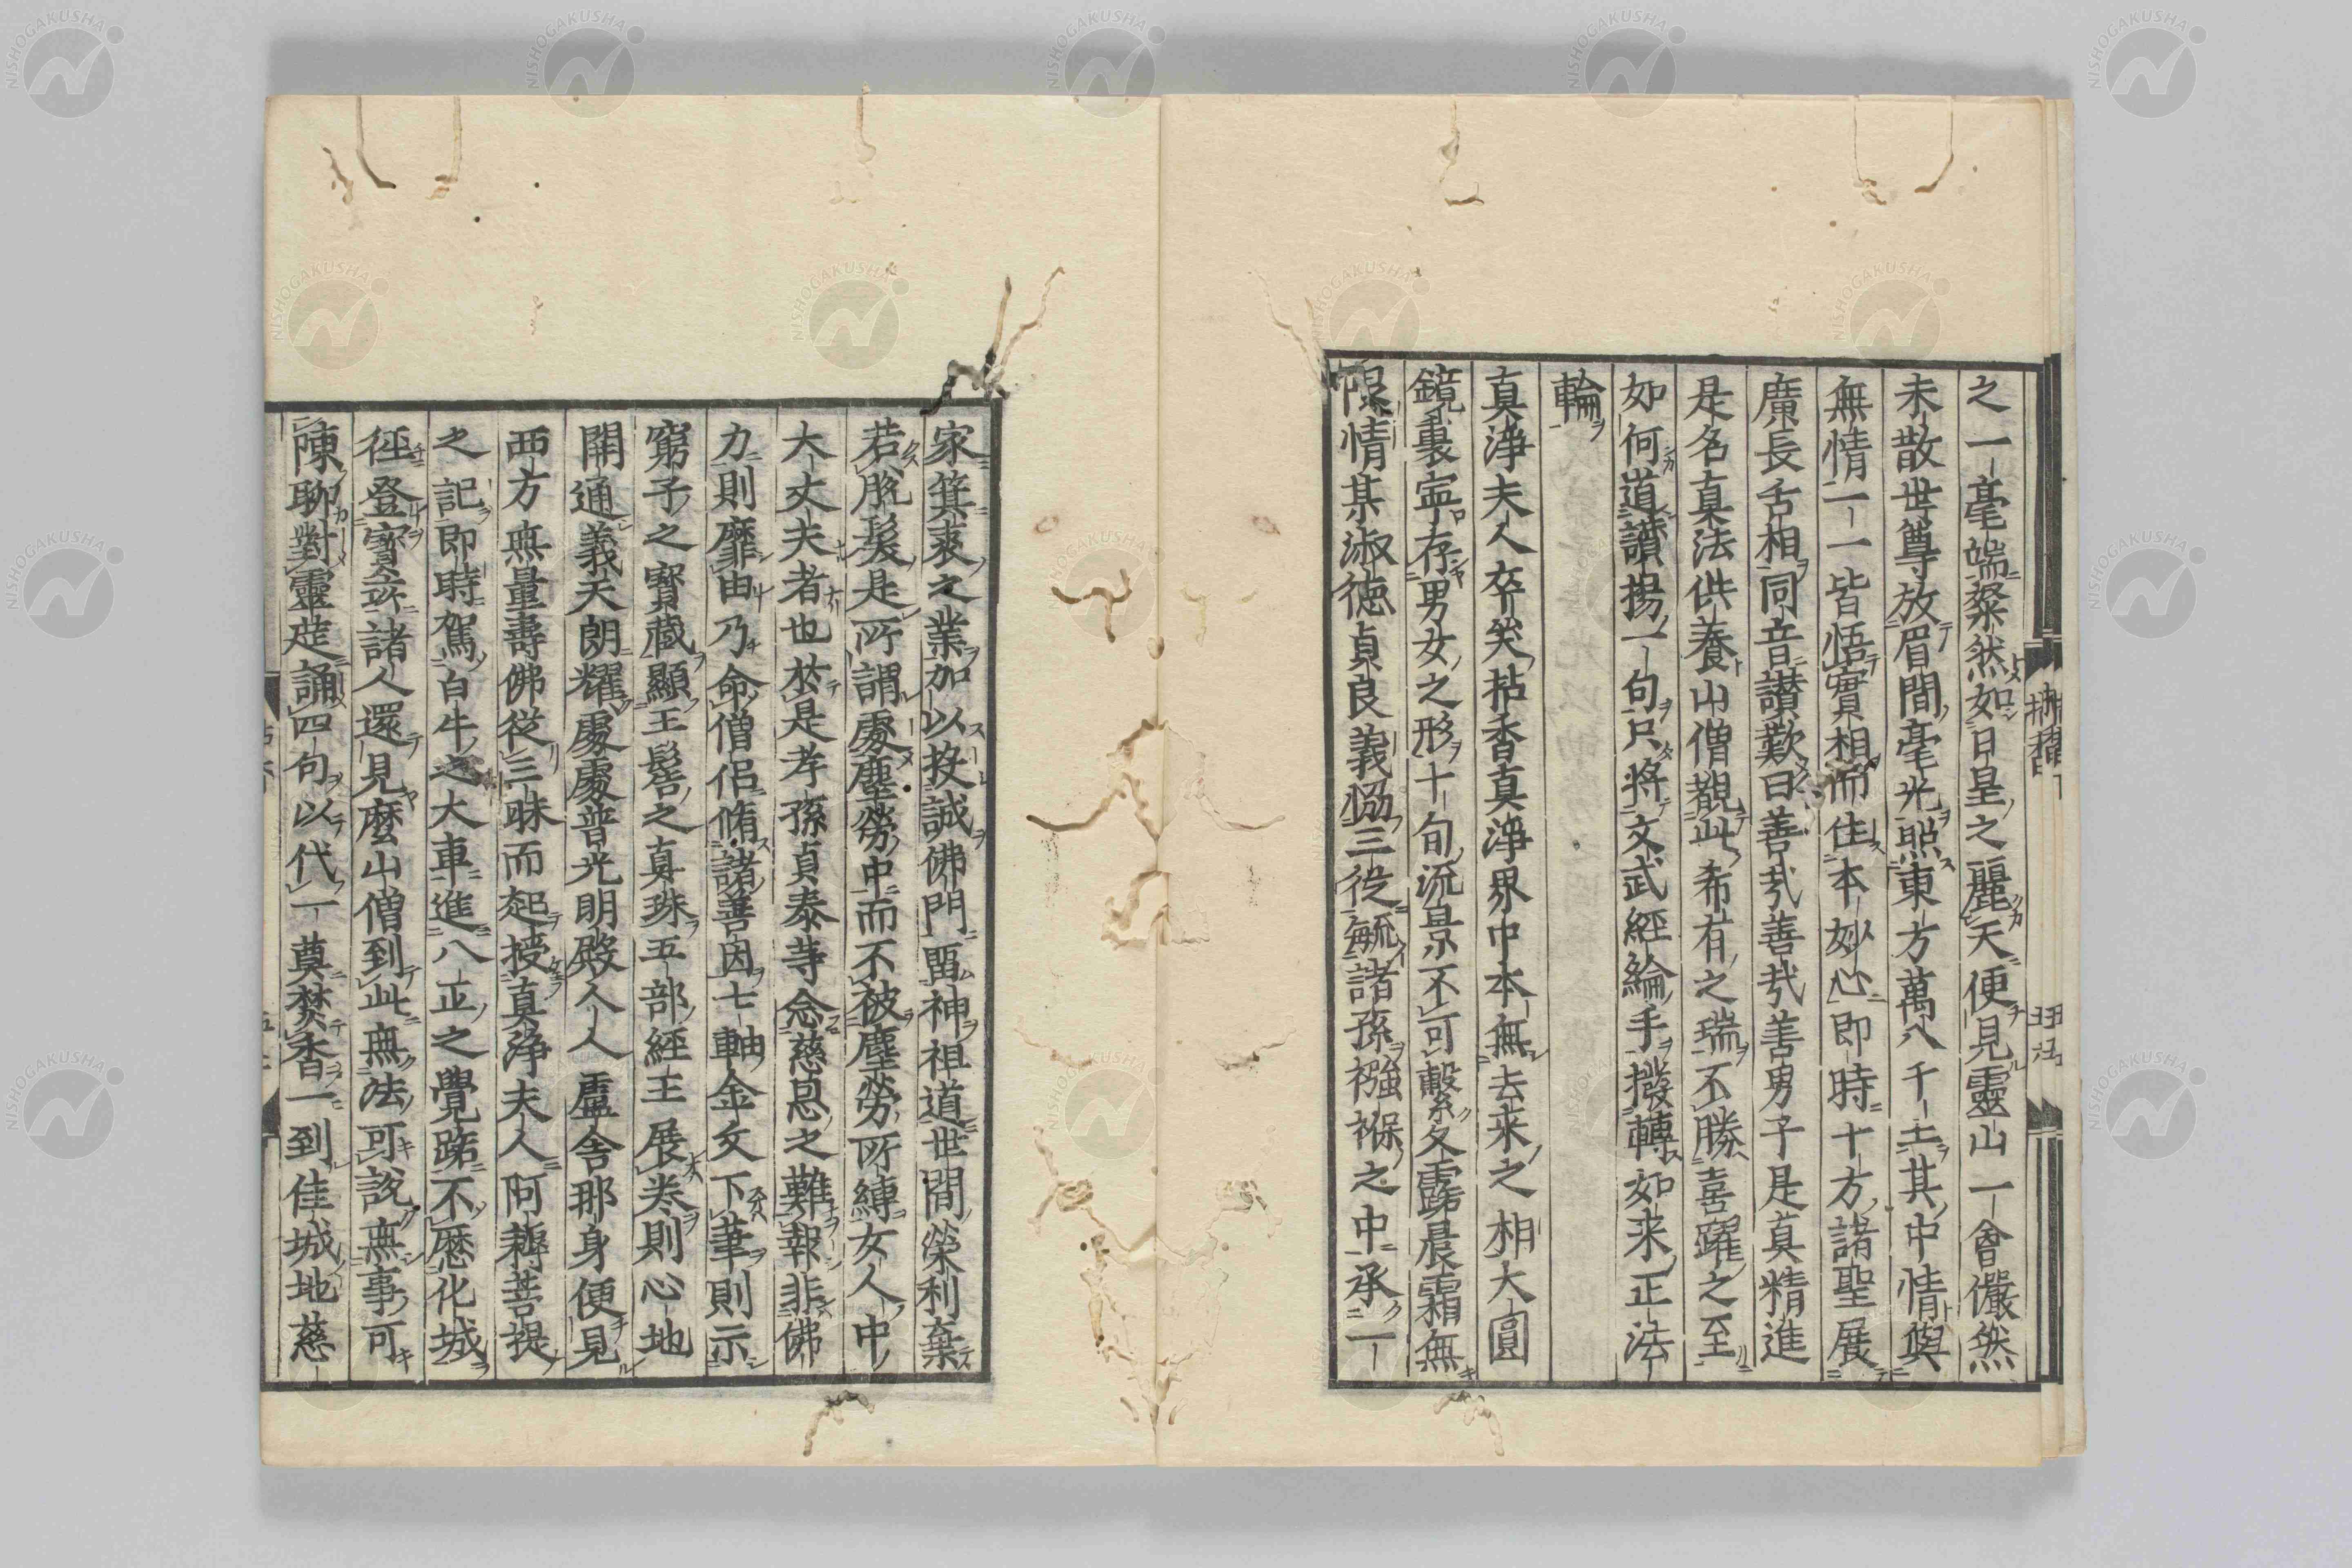 之一毫端粲然如日星之麗天便見靈山一會儼然
未散世尊放眉間毫光照東方萬八千土其中情與
無情一一皆悟實相而住本妙心即時十方諸聖展
廣長舌相同音讃歎曰善哉善哉善男子是真精進
是名真法供養山僧覩此希有之瑞不勝喜躍之至
如何道讃揚一句只將文武經綸手撥轉如来正法
輪
真淨夫人卒哭拈香真淨界中本無去来之相大圓
鏡裏寧存男女之形十旬流景不可繫冬露晨霜無
限情某淑徳貞良義恊三從毓諸孫襁褓之中承一
家箕裘之業加以投誠佛門留神祖道世間榮利棄
若脱髮是所謂處塵勞中而不被塵勞所縛女人中
大丈夫者也於是孝孫貞泰等念慈恩之難報非佛
力則靡由乃命僧侶脩諸善因七軸金文下筆則示
窮子之寳藏顯王髻之真珠五部經王展巻則心地
開通義天朗耀處處普光明殿人人盧舎那身便見
西方無量壽佛従三昧而起授真淨夫人阿耨菩提
之記即時駕白牛之大車進八正之覺路不歴化城
徑登寳所諸人還見麼山僧到此無法可説無事可
陳聊對靈筵誦四句以代一奠焚香一到佳城地慈
NISHOGAKUSHA